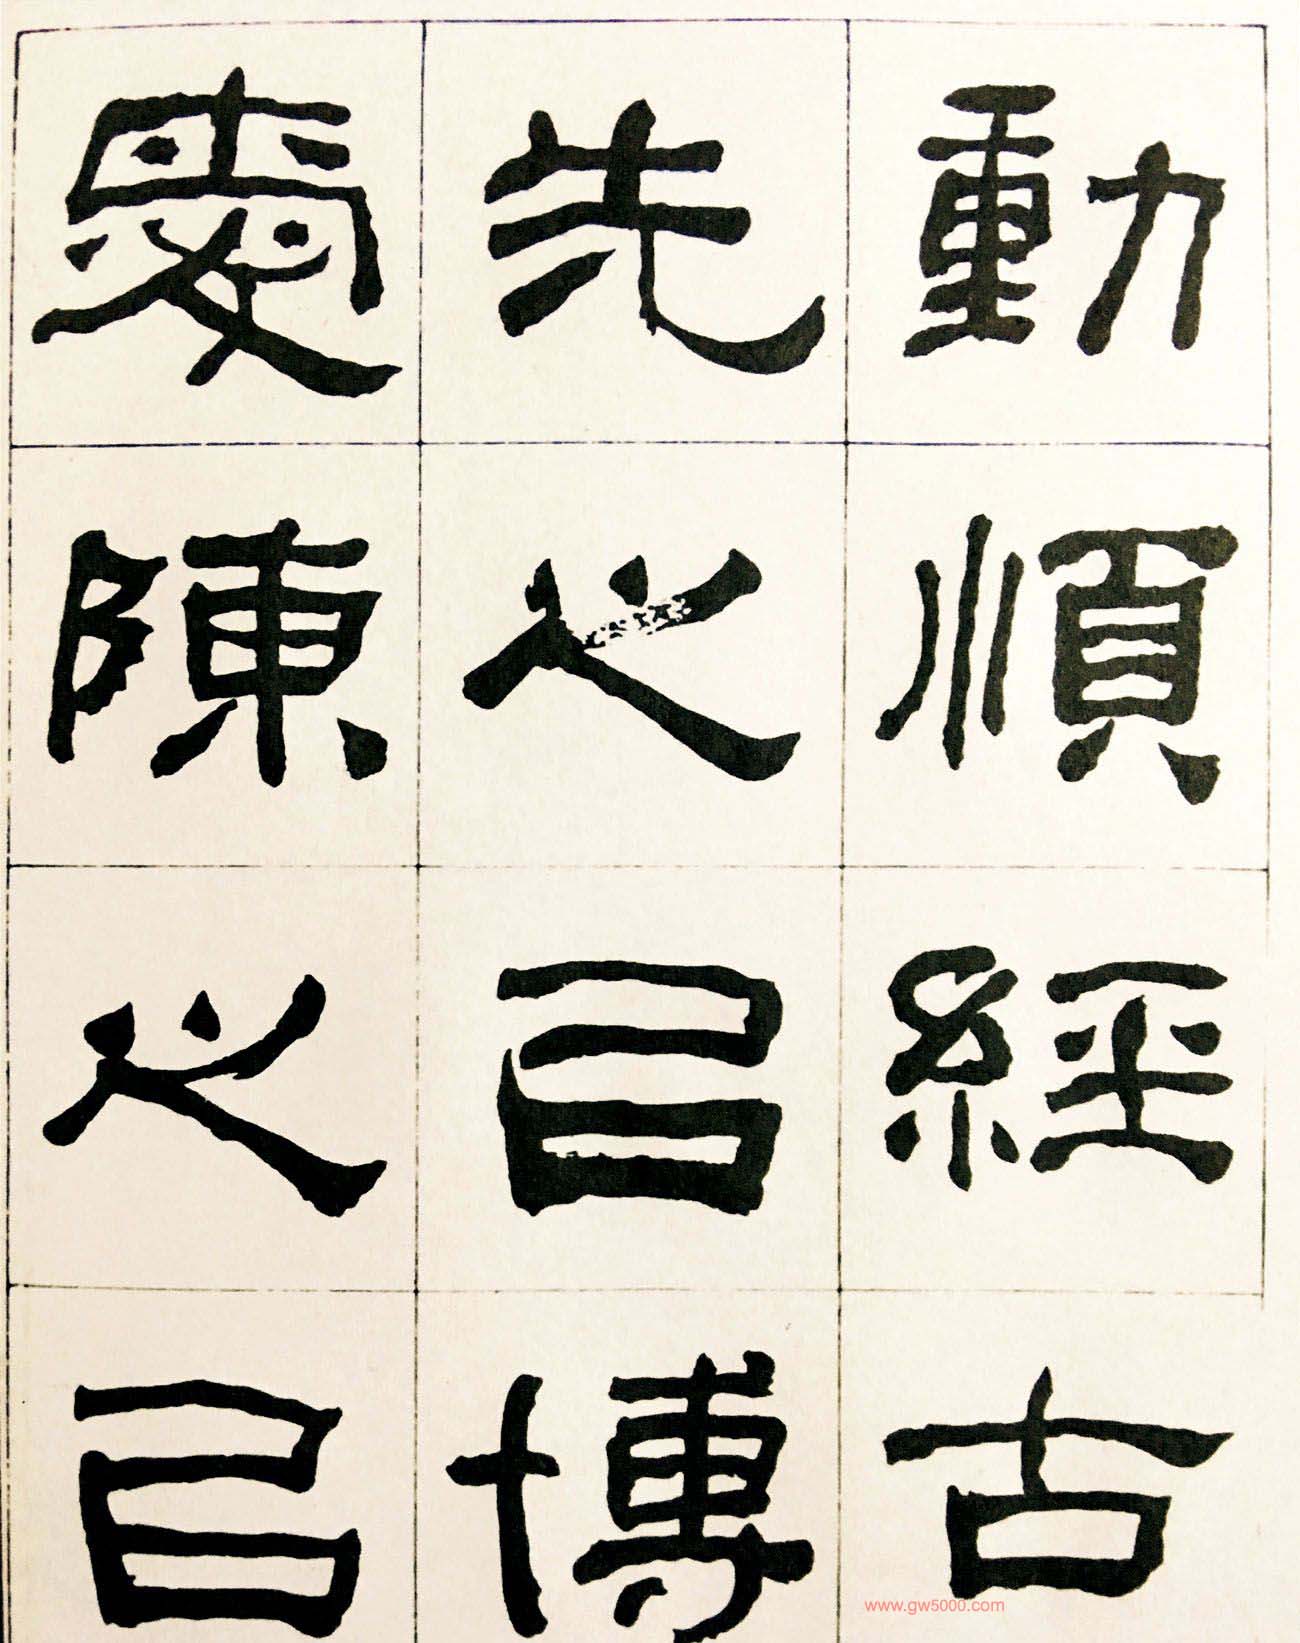 動順經古
先之㠯博
愛陳之㠯
www.gw5000.com